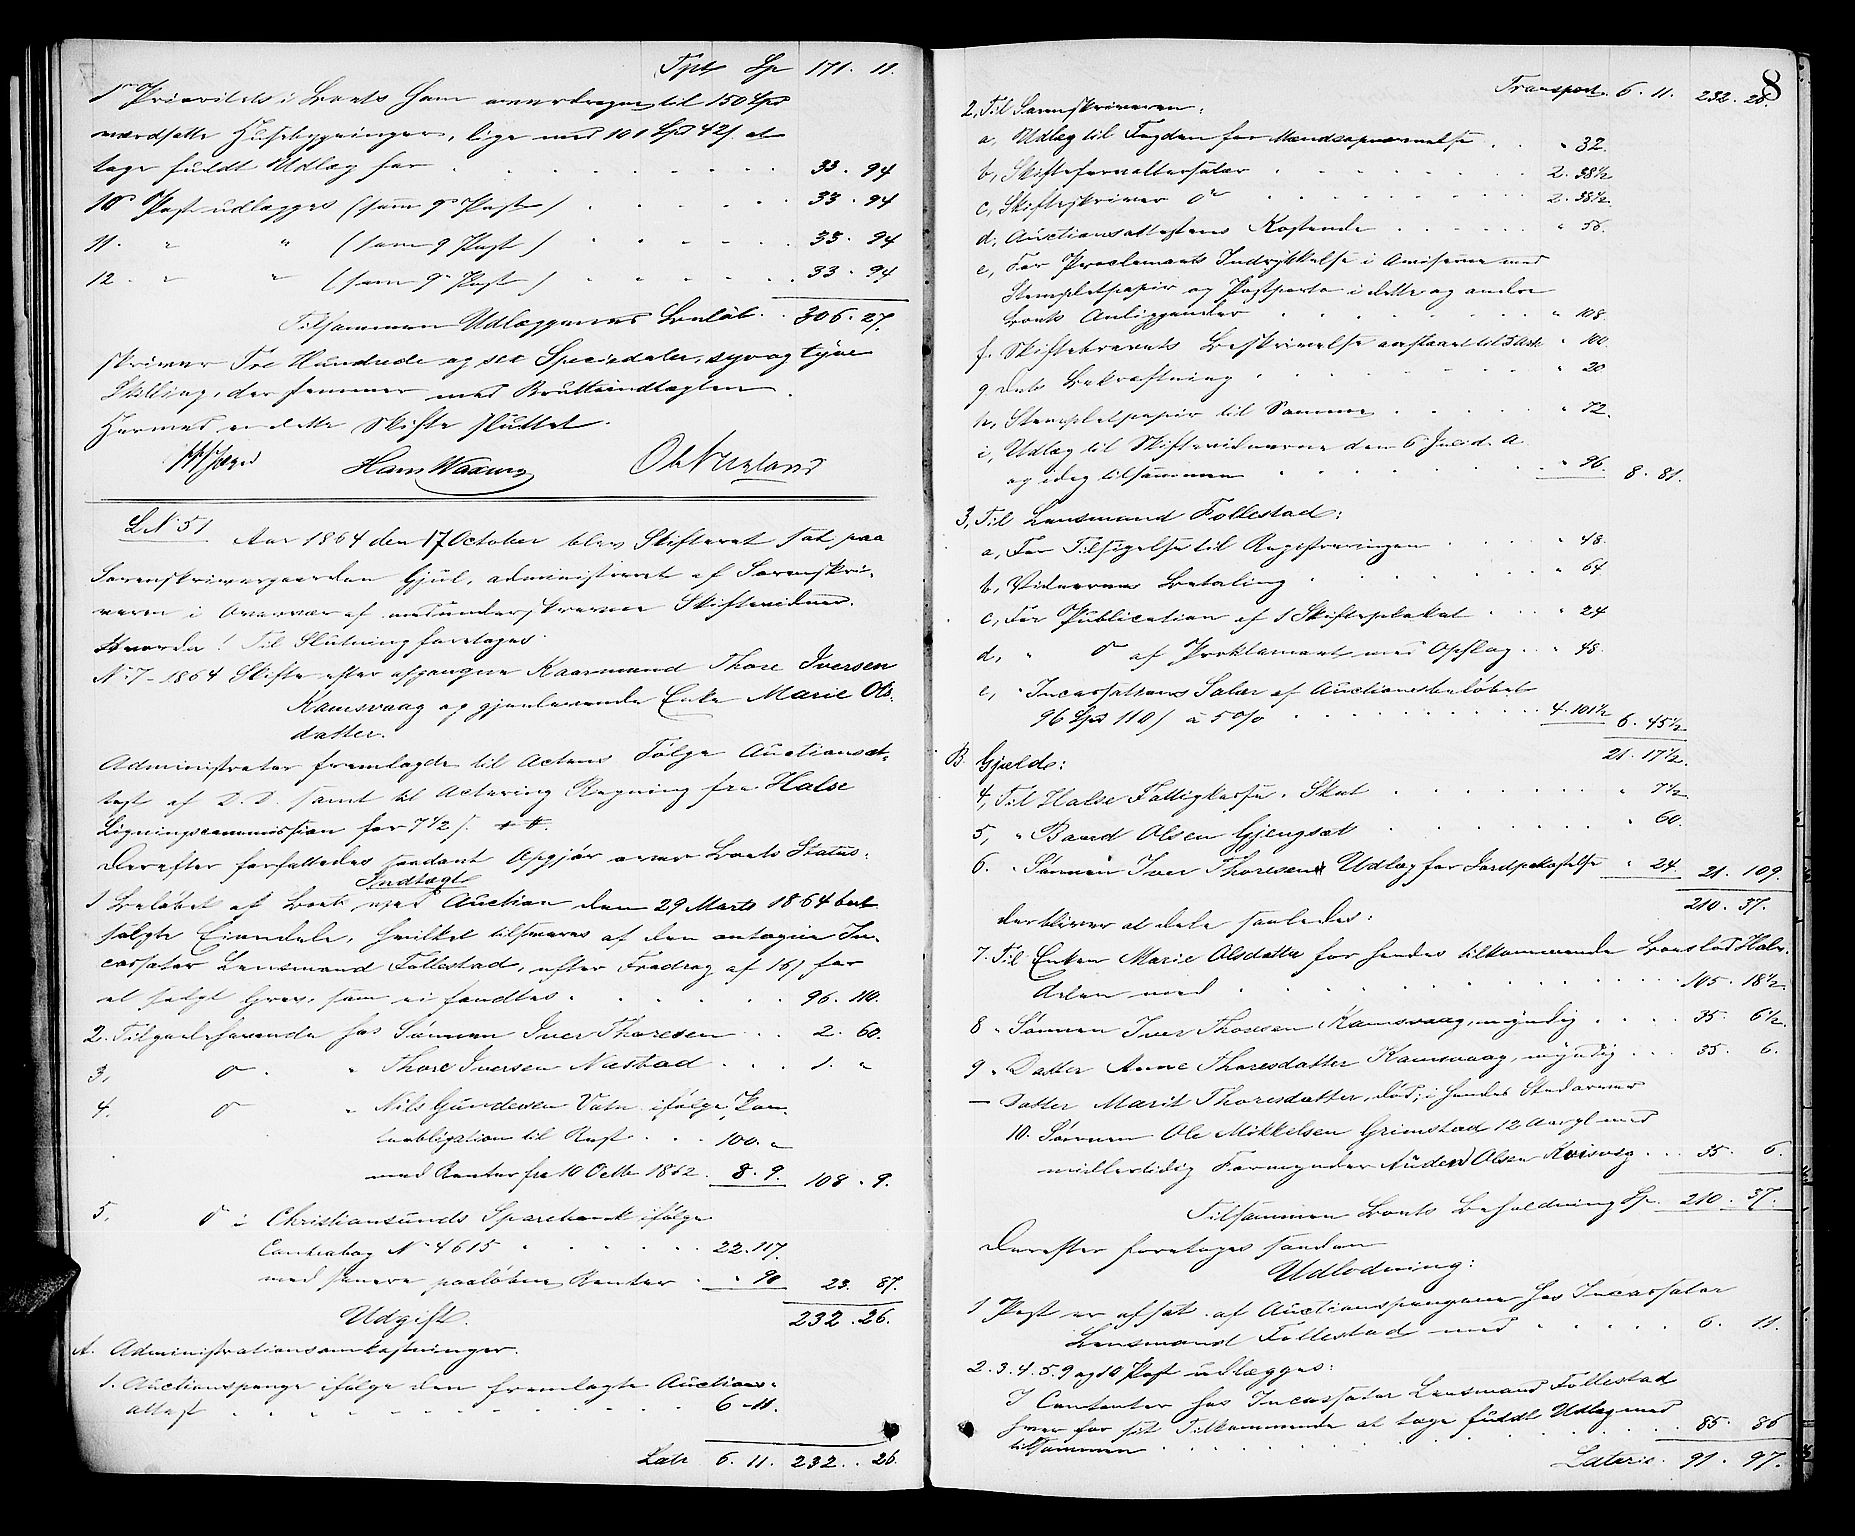 Tpt Sp 171. 11.
Prioritets i Boets Ham overdragne til 150 Spd
værdsatte Huusebygninger, lige med 101 Spd 42 s. at
tage fuldt Udlæg for 33. 94
10de Post udlægges (som 9de Post) 33. 94
11. " " (som 9 Post) 33. 94
12. " " (som 9de Post) 33. 94
Tilsammen Udlæggenes Beløb 306. 27.
skriver Tre Hundrede og sex Speciedaler, syv og tyve
Skilling, der stemmer med Bruttoindtægten.
Hermed er dette Skifte sluttet.
Hans Waagen
L No 51. Aar 1864 den 17 October blev Skifteret sat paa
Sorenskrivergaarden Gjul, administreret af Sorenskri-
veren i Overvær af undunderskrevne Skiftevidner.
Hvorda! Til Slutning foretoges
No 7 - 1864 Skifte efter afgangne Kaarmand Thore Iversen
Kamsvaag og gjenlevende Enke Marie Ols-
datter.
Administrator fremlagde til Actens Følge Auctionsat-
test af D. D. samt til Actering Regning fra Halse
Ligningscommission for 7 1/2 s.
Derefter forfattedes saadant Opgjør over Boets Status:
Indtægt
1 Beløbet af Boets ved Auction den 29 Marts 1864 bort-
solgte Eiendele, hvilket tilsvares af den antagne In-
cassator Lensmand Follestad, efter Fradrag af 16 s for
et solgt Grev, som ei fandtes 96. 110.
2. Tilgodehavende hos Sønnen Iver Thoresen 2. 60.
3, do " Thore Iversen Næstad 1. "
4. do " Nils Gundersen Vatn ifølge Pan-
teobligation til Rest 100. "
med Renter fra 10 Octb 1862 8. 9. 108. 9.
5. do i Christiansunds Sparebank ifølge
Contrabog No 4615 22. 117.
med senere paaløbne Renter " 90 23. 87.
Udgift. 232. 26.
A. Administrationsomkostninger.
1. Auctionspenge ifølge den fremlagte Auctions-
attest 6. 11.
Lat 6. 11. 232. 26.
8
Transport 6. 11. 232. 26.
2, Til Sorenskriveren:
a, Udlæg til Fogden for Mandsopnævnelse " 32.
b, Skifteforvaltersalær 2. 38 1/2
c, Skifteskriver do 2. 38 1/2.
d, Auctionsattestens Kostende " 58.
e, For Proclamaets Indrykkelse i Aviserne med
Stempletpapir og Postporto i dette og andre
Boets Anliggender " 108.
f. Skiftebrevets Beskrivelse anslaaet til 5 Ark " 100.
g dets Bekræftning " 20
h, Stempletpapir til Samme " 72.
i, Udlæg til Skiftevidnerne den 6 Juni d. A.
og idag tilsammen " 96. 8. 81.
3, Til Lensmand Follestad:
a, For Tilsigelse til Registreringen " 48.
b, Vidnernes Betaling " 64
c, For Publication af 1 Skifteplakat " 24
d, " do af Proklamaet med Opslag " 48.
e, " Incassations Salær af Auctionsbeløbet
96 Spd 110 s à 5 % 4. 101 1/2 6. 45 1/2
21. 17 1/2.
B. Gjæld:
4, Til Halse Fattigkasse, Skat " 7 1/2
5, " Baard Olsen Gjengsæt " 60.
6. " Sønnen Iver Thoresen Udlæg for Jordpekostelse " 24. 21. 109.
210. 37.
der bliver at dele saaledes:
7. Til Enken Marie Olsdatter for hendes tilkommende Boeslod Halv-
delen med 105. 18 1/2
8 " Sønnen Iver Thoresen Kamsvaag, myndig 35. 6 1/2.
9 " Datter Anne Thoresdatter Kamsvaag, myndig 35. 6.
— Datter Marit Thoresdatter, død; i hendes Sted arver
10. Sønnen Ole Mikkelsen Grimstad 12 Aar gl med
midlertidig Formynder Auden Olsen Kvisvig 35. 6.
Tilsammen Boets Beholdning Sp. 210. 37.
Derefter foretoges saadan
Udlodning:
1 Post er afsat af Auctionspengene hos Incassator
Lensmand Follestad med 6. 11.
2. 3. 4. 5. 9 og 10 Post udlægges:
I Contanter hos Incassator Lensmand Follestad
hver for sit Tilkommende at tage fuldt Udlæg med
tilsammen 85. 86
Lateris. 91. 97.